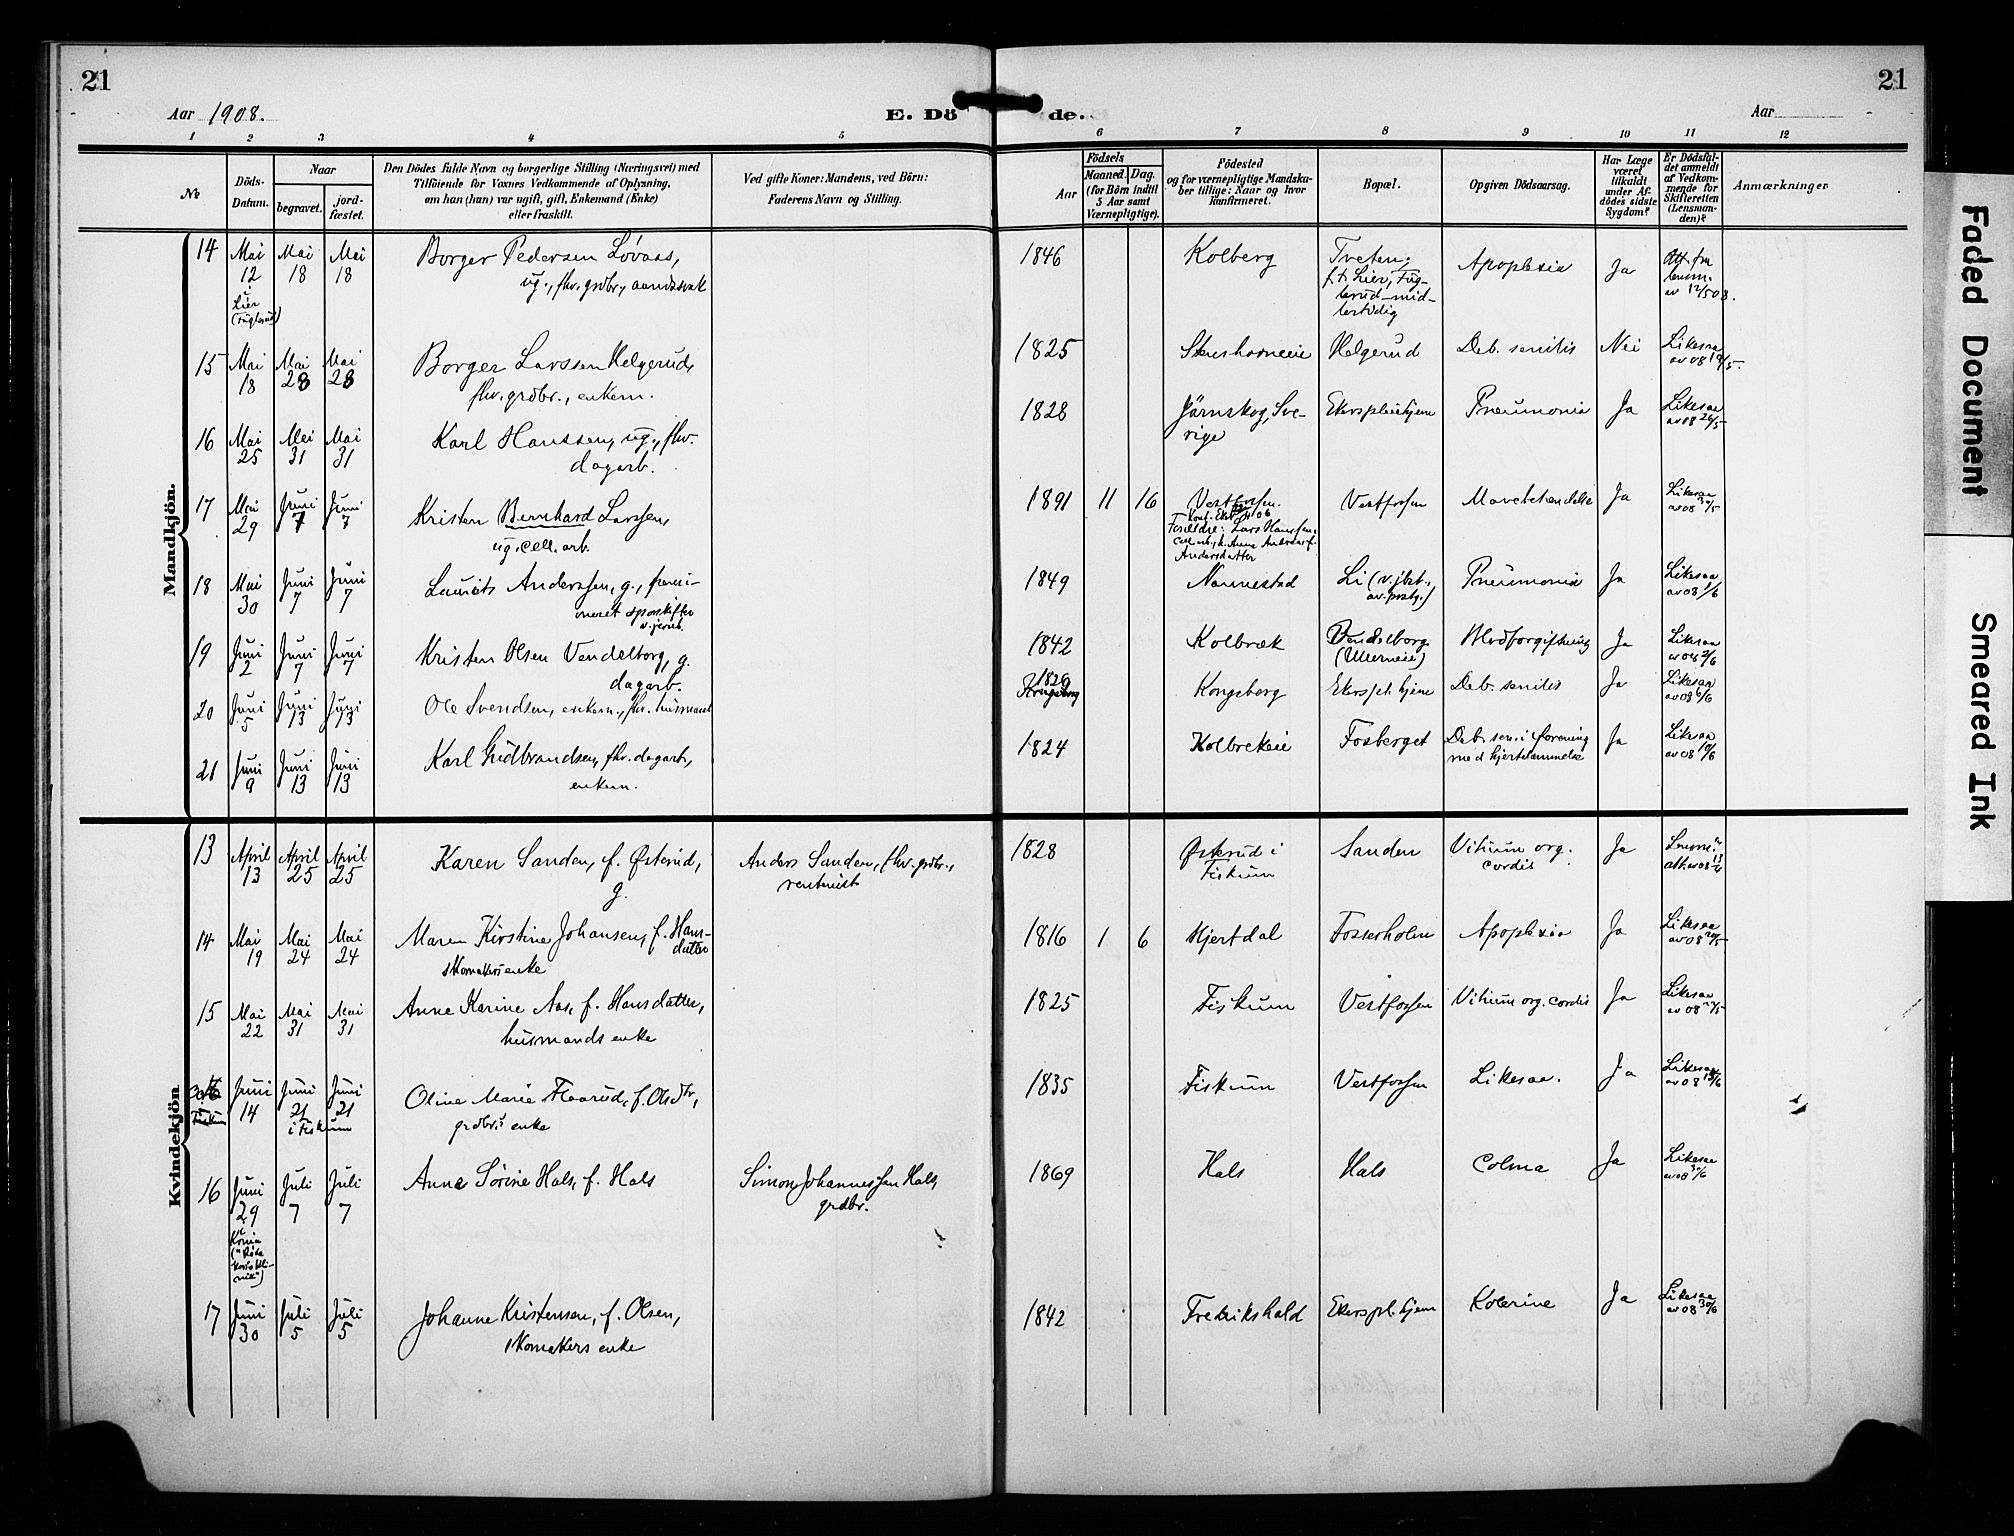 21
21
Aar 1908.
E. Dö
de.
Aar
1 2 3 4 5 6 7 8 9 10 11 12
№
Döds-
Datum.
Naar
begravet.
jord-
fæstet.
Den Dödes fulde Navn og borgerlige Stilling (Næringsvei) med
Tilföiende for Voxnes Vedkommende af Oplysning,
om han (hun) var ugift, gift, Enkemand (Enke)
eller fraskilt.
Ved gifte Koner: Mandens, ved Börn:
Faderens Navn og Stilling.
Födsels
Aar
Maaned. Dag.
(for Börn indtil
5 Aar samt
Værnepligtige).
Födested
og for værnepligtige Mandska-
ber tillige: Naar og hvor
konfirmeret.
Bopæl.
Opgiven Dödsaarsag.
Har Læge
været
tilkaldt
under Af-
dödes sidste
Sygdom?
Er Dödsfal-
det anmeldt
af Vedkom-
mende for
Skifteretten
(Lensman-
den)?
Anmærkninger
Mandkjön.
14 Mai 12 Mai 18 Mai 18 Borger Pedersen Løvaas, 1846 Kolberg Tveten, Apoplexia Ja Att. fra
i Lier (Fuglerud) ug., fhv. grdbr., aandssvak f. t. Lier, Fug-
lerud-mid-
lertidig
lensm.
av 12/5 08.
15 Mai 18 Mai 28 Mai 28 Borger Larssen Helgerud, 1825 Stenshorneeie Helgerud Deb. senilis Nei Likesaa
fhv. grdbr., enkem. av 08 19/5.
16 Mai 25 Mai 31 Mai 31 Karl Hanssen, ug., fhv. 1828 Järnskog, Sve- Ekerspleiehjem Pneumonia Ja Likesaa
dagarb. rige av 08 26/5
17 Mai 29 Juni 7 Juni 7 Kristen Bernhard Larssen, 1891 11 16 Vestfossen. Vestfossen Ja Likesaa
ug. cell. arb. av 08 30/5
Forældre: Lars Hanssen,
Andersdatter
18 Mai 30 Juni 7 Juni 7 Laurits Anderssen, g., pensi- 1849 Nannestad Li (v. jbst., Pneumonia Ja Likesaa
oneret sporskifter av. pstg.) av 08 1/6
v. jernb.
19 Juni 2 Juni 7 Juni 7 Kristen Olsen Vendelborg, g. 1842 Kolbræk Vendelborg Blodforgiftning Ja Likesaa
dagarb. (Ullerneie) av 08 2/6
20 Juni 5 Juni 13 Juni 13 Ole Svendsen, enkem., fhv. husmand 1829 Kongsberg Ekerspl. hjem Deb. senilis Ja Likesaa
Kongsberg av 08 6/6
21 Juni 9 Juni 13 Juni 13 Karl Gudbrandsen, fhv. dagarb., 1824 Kolbrekeie Fosberget Deb. sen. i forening Ja Likesaa
enkem. med hjertelammelse av 08 10/6
Kvindekjön
13 April 13 April 25 April 25 Karen Sanden, f. Østerud, Anders Sanden, fhv. grdbr., 1828 Østerud i Sanden Vitium org. Ja
g. rentenist Fiskum cordis
14 Mai 19 Mai 24 Mai 24 Maren Kirstine Johansen, f. Hans- 1816 1 6 Hjertdal Fosserholm Apoplexia Ja Likesaa
datter av 08 20/5
skomakers enke
15 Mai 22 Mai 31 Mai 31 Anne Karine Aas, f. Hansdatter, 1825 Fiskum Vestfossen Vitium org. cordis Ja Likesaa
husmands enke av 08
Fiskum Juni 14 Juni 21 Juni 21 Oline Marie Flaarud, f. Olsdtr, 1835 Fiskum Vestfossen Likesaa. Ja Likesaa
i Fiskum grdbr.s enke av 08 15/6
16 Juni 29 Juli 7 Juli 7 Anne Sørine Hals, f. Hals Simon Johannessen Hals, 1869 Hals Hals Coma Ja Likesaa
grdbr. av 08
i Kr.nia
("Røde
Kors's kli-
nik")
17 Juni 30 Juli 5 Juli 5 Johanne Kristensen, f. Olsen, 1842 Fredrikshald Ekerspl. hjem Kolerine Ja Likesaa
skomakers enke av 08 30/6
Faded Document
Smeared Ink